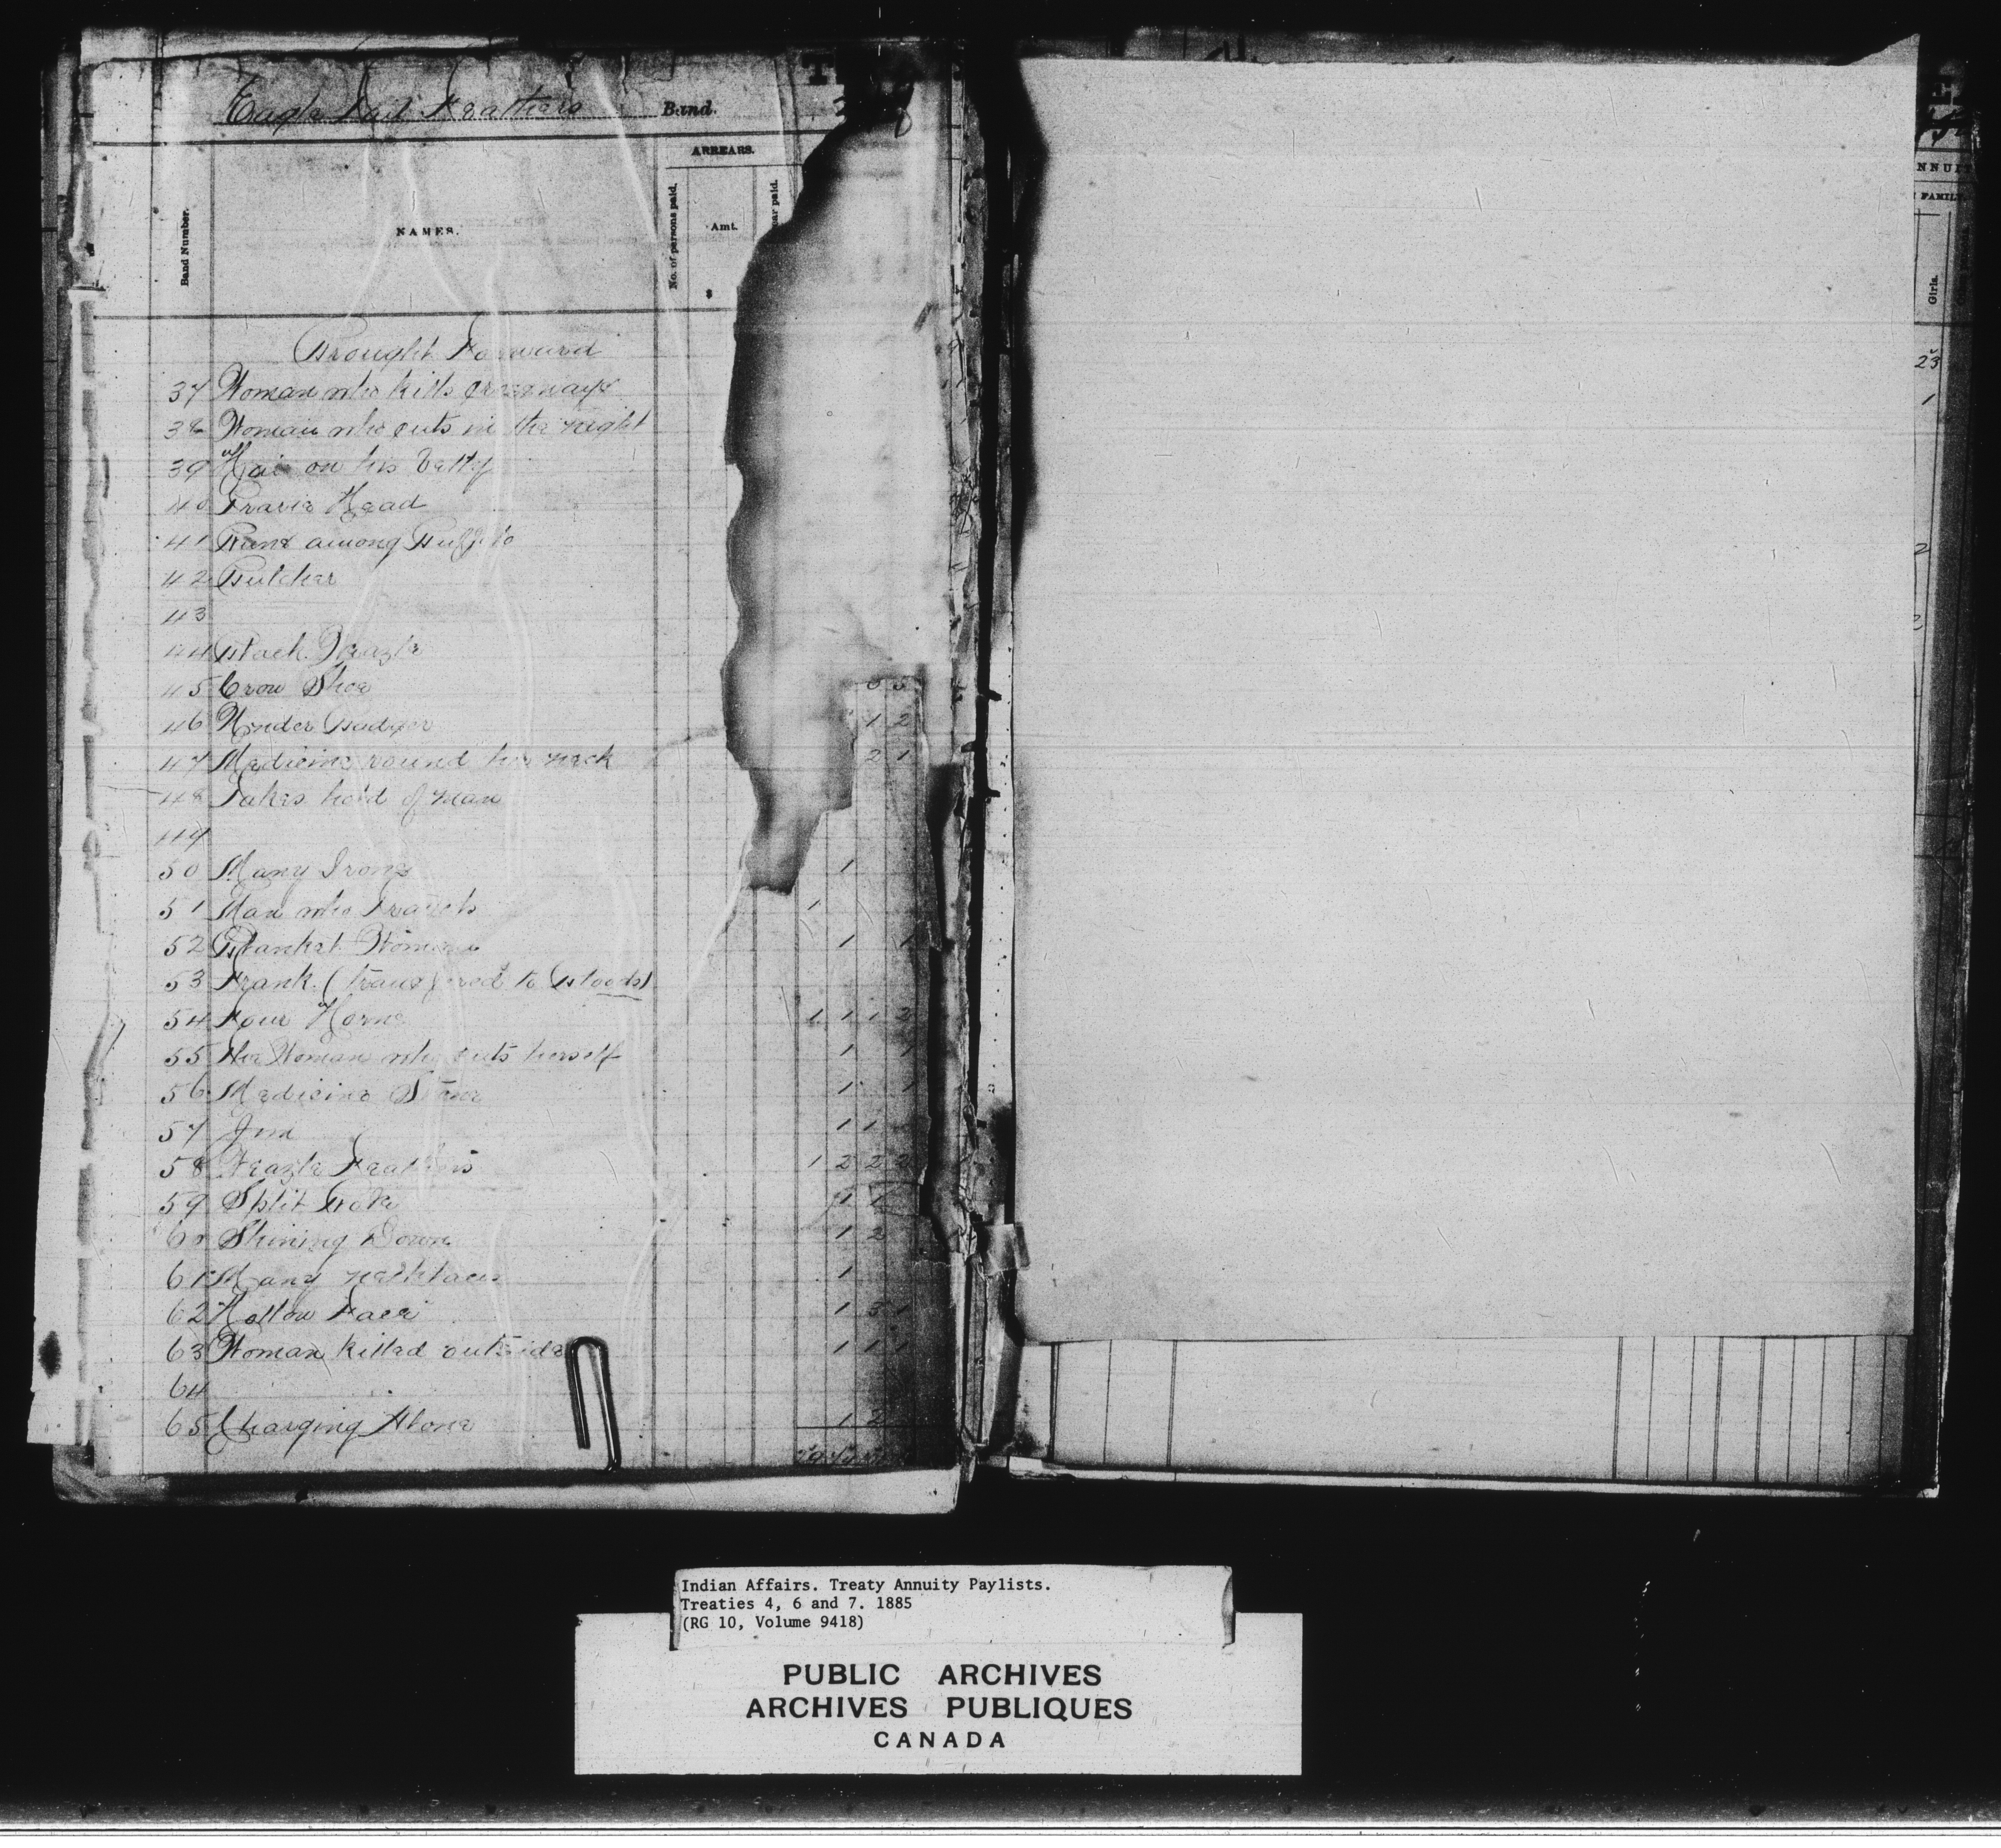 Eagle Tail Feathers Band.
ARREARS.
Band Number.
NAMES.
No. of persons paid.
Amt.
ar paid.
$
NNUI
FAMIL
Girls.
Brought Forward
23
37 Woman who kills
1
38 Woman who cuts in the night
39 Hair on his belly
40 Prarie Head
41 Runs among Buffalo
2
42 Butcher
43
44 Black Weazle
45 Crow Shoe
46 Under Badger 1 2
47 Medicine round his neck 2 1
48 Takes hold of Man
49
50 Many Irons 1
51 Man who 1
52 Blanket Woman 1 1
53 Frank (transfered to Bloods)
54 Four Horns 1 1 1 2
55 The Woman who cuts herself 1 1
56 Medicine Stone 1 1
57 Jim 1 1
58 Weazle Feathers 1 2 2 2
59 Split 1 1
60 Shining Down 1 2
61 Many necklaces 1
62 Hollow Face 1 3 1
63 Woman Killed outside 1 1 1
64
65 Charging Alone 1 2
Indian Affairs. Treaty Annuity Paylists.
Treaties 4, 6 and 7. 1885
(RG 10, Volume 9418)
PUBLIC ARCHIVES
ARCHIVES PUBLIQUES
CANADA